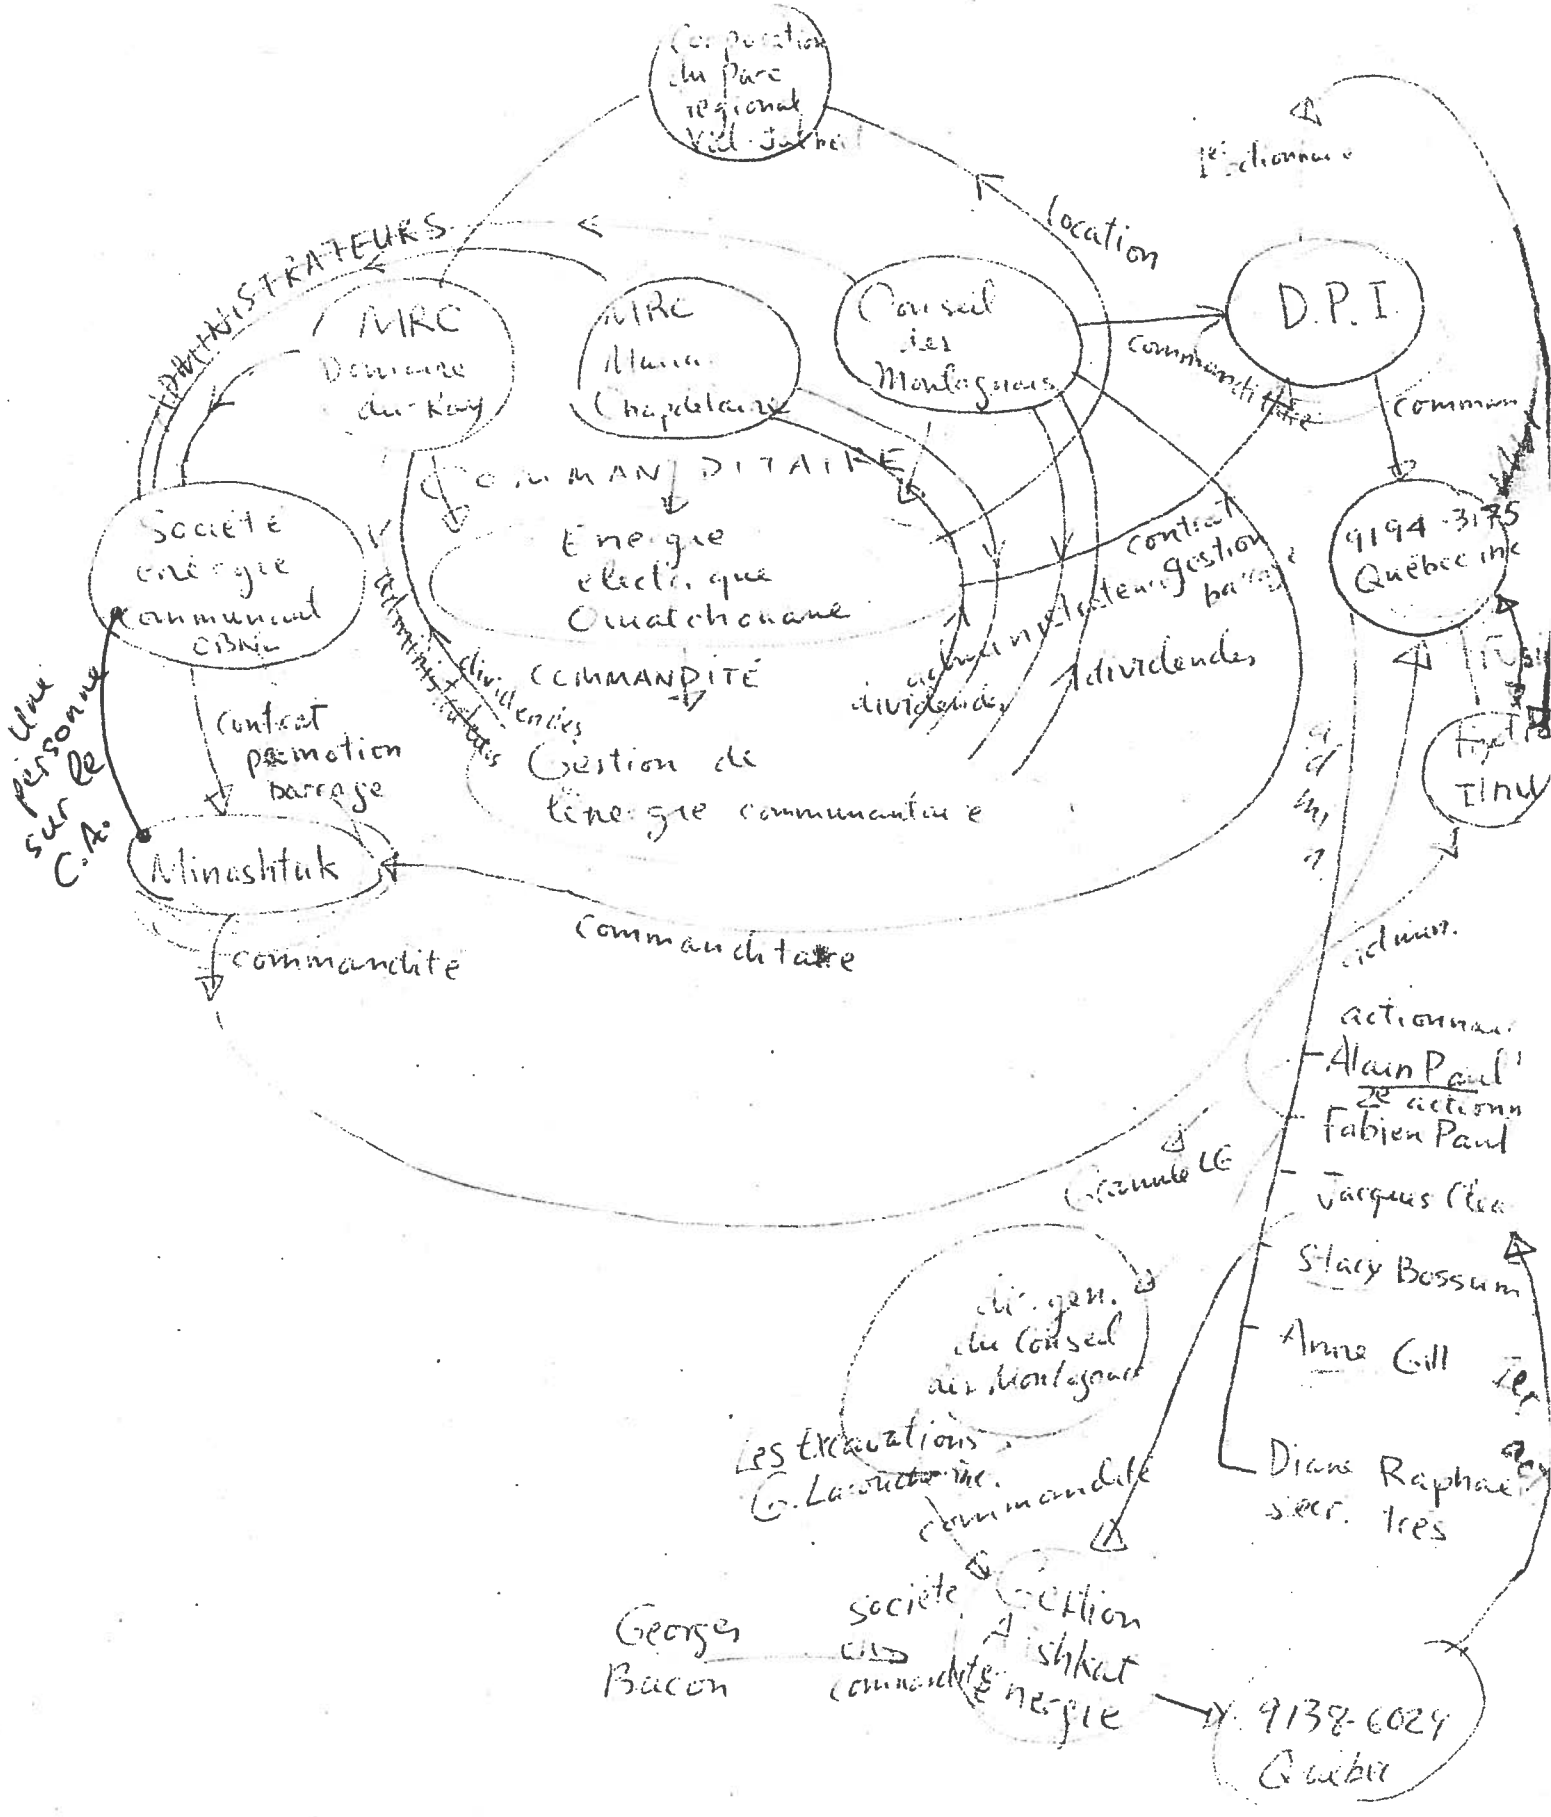 Corporation
du parc
régional
Val-Jalbert
Location
ADMINISTRATEURS
MRC
Domaine
du-Roy
MRC
Maria
Chapdelaine
Conseil
des
Montagnais
D.P.I.
commanditaire
commun
COMMANDITAIRE
Société
énergie
communaut
Énergie
électrique
Ouiatchouane
contrat
gestion
barrage
9194-3175
Québec inc
administrateurs
dividendes
COMMANDITÉ
administrateurs
dividendes
dividendes
Gestion de
l'énergie communautaire
une
personne
sur le
C.A.
contrat
promotion
barrage
Minashtuk
commandité
commanditaire
admin.
admin.
Alain Paul
2e actionn
Fabien Paul
Jacques Clea
Stacy Bossum
Anne Gill
Diane Raphae
secr. trés
Granule LG
dir. gen.
du Conseil
des Montagnais
Les Excavations
G. Lacombe inc.
commandité
Georges
Bacon
société
en
commandite
Gestion
Aishkat
Énergie
9138-6024
Québec